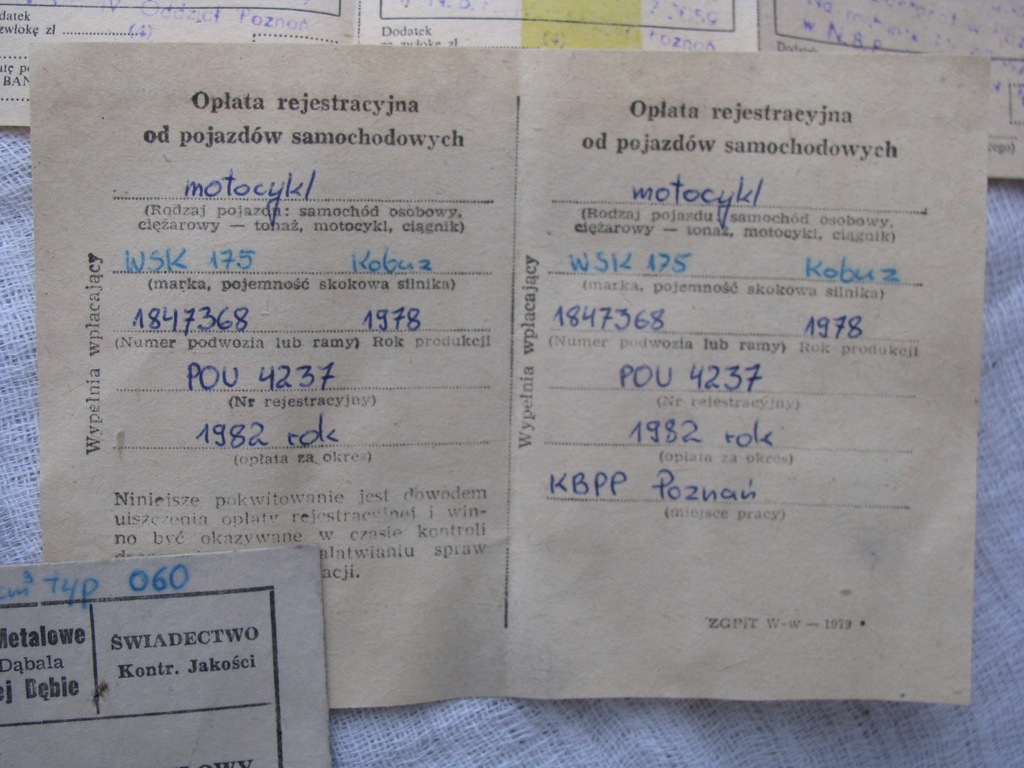 IV Oddział Poznań
datek
zwłokę zł
(4)
BAN
Dodatek
Poznań
Dodatek
w N.B.P.
Opłata rejestracyjna
od pojazdów samochodowych
motocykl
(Rodzaj pojazdu: samochód osobowy,
ciężarowy — tonaż, motocykl, ciągnik)
WSK 175 Kobuz
(marka, pojemność skokowa silnika)
1847368 1978
(Numer podwozia lub ramy) Rok produkcji
POU 4237
(Nr rejestracyjny)
1982 rok
(opłata za okres)
Wypełnia wpłacający
Niniejsze pokwitowanie jest dowodem
uiszczenia opłaty rejestracyjnej i win-
no być okazywane w czasie kontroli
załatwianiu spraw
acji.
Opłata rejestracyjna
od pojazdów samochodowych
motocykl
(Rodzaj pojazdu samochód osobowy,
ciężarowy — tonaż, motocykl, ciągnik)
WSK 175 Kobuz
(marka, pojemność skokowa silnika)
1847368 1978
(Numer podwozia lub ramy) Rok produkcji
POU 4237
(Nr rejestracyjny)
1982 rok
(opłata za okres)
KBPP Poznań
(miejsce pracy)
Wypełnia wpłacający
ZGPiT W-w — 1979
cm³ typ 060
Metalowe
Dąbala
ej Dębie
ŚWIADECTWO
Kontr. Jakości
OWY